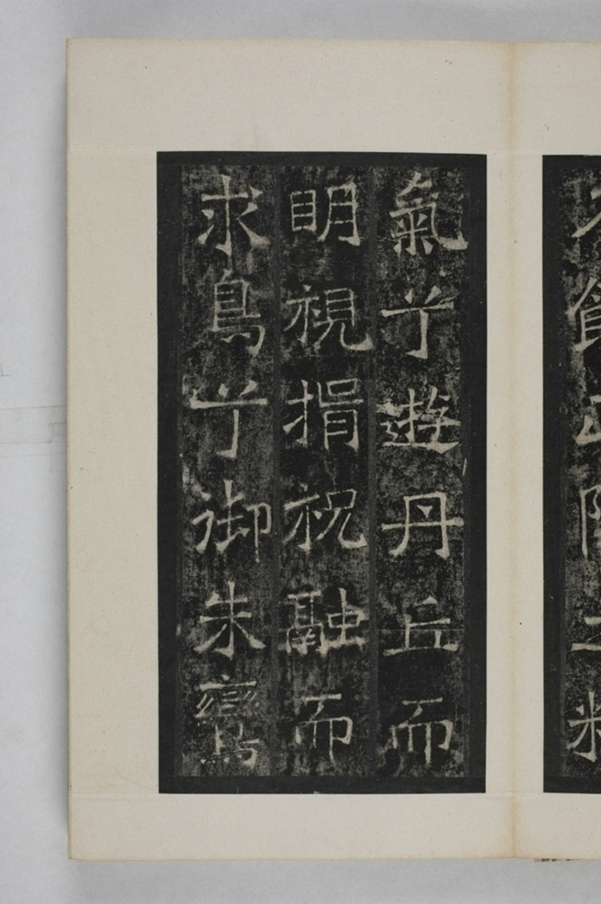 氣兮遊丹丘而
眀視指祝融而
求鳥兮御朱鸞